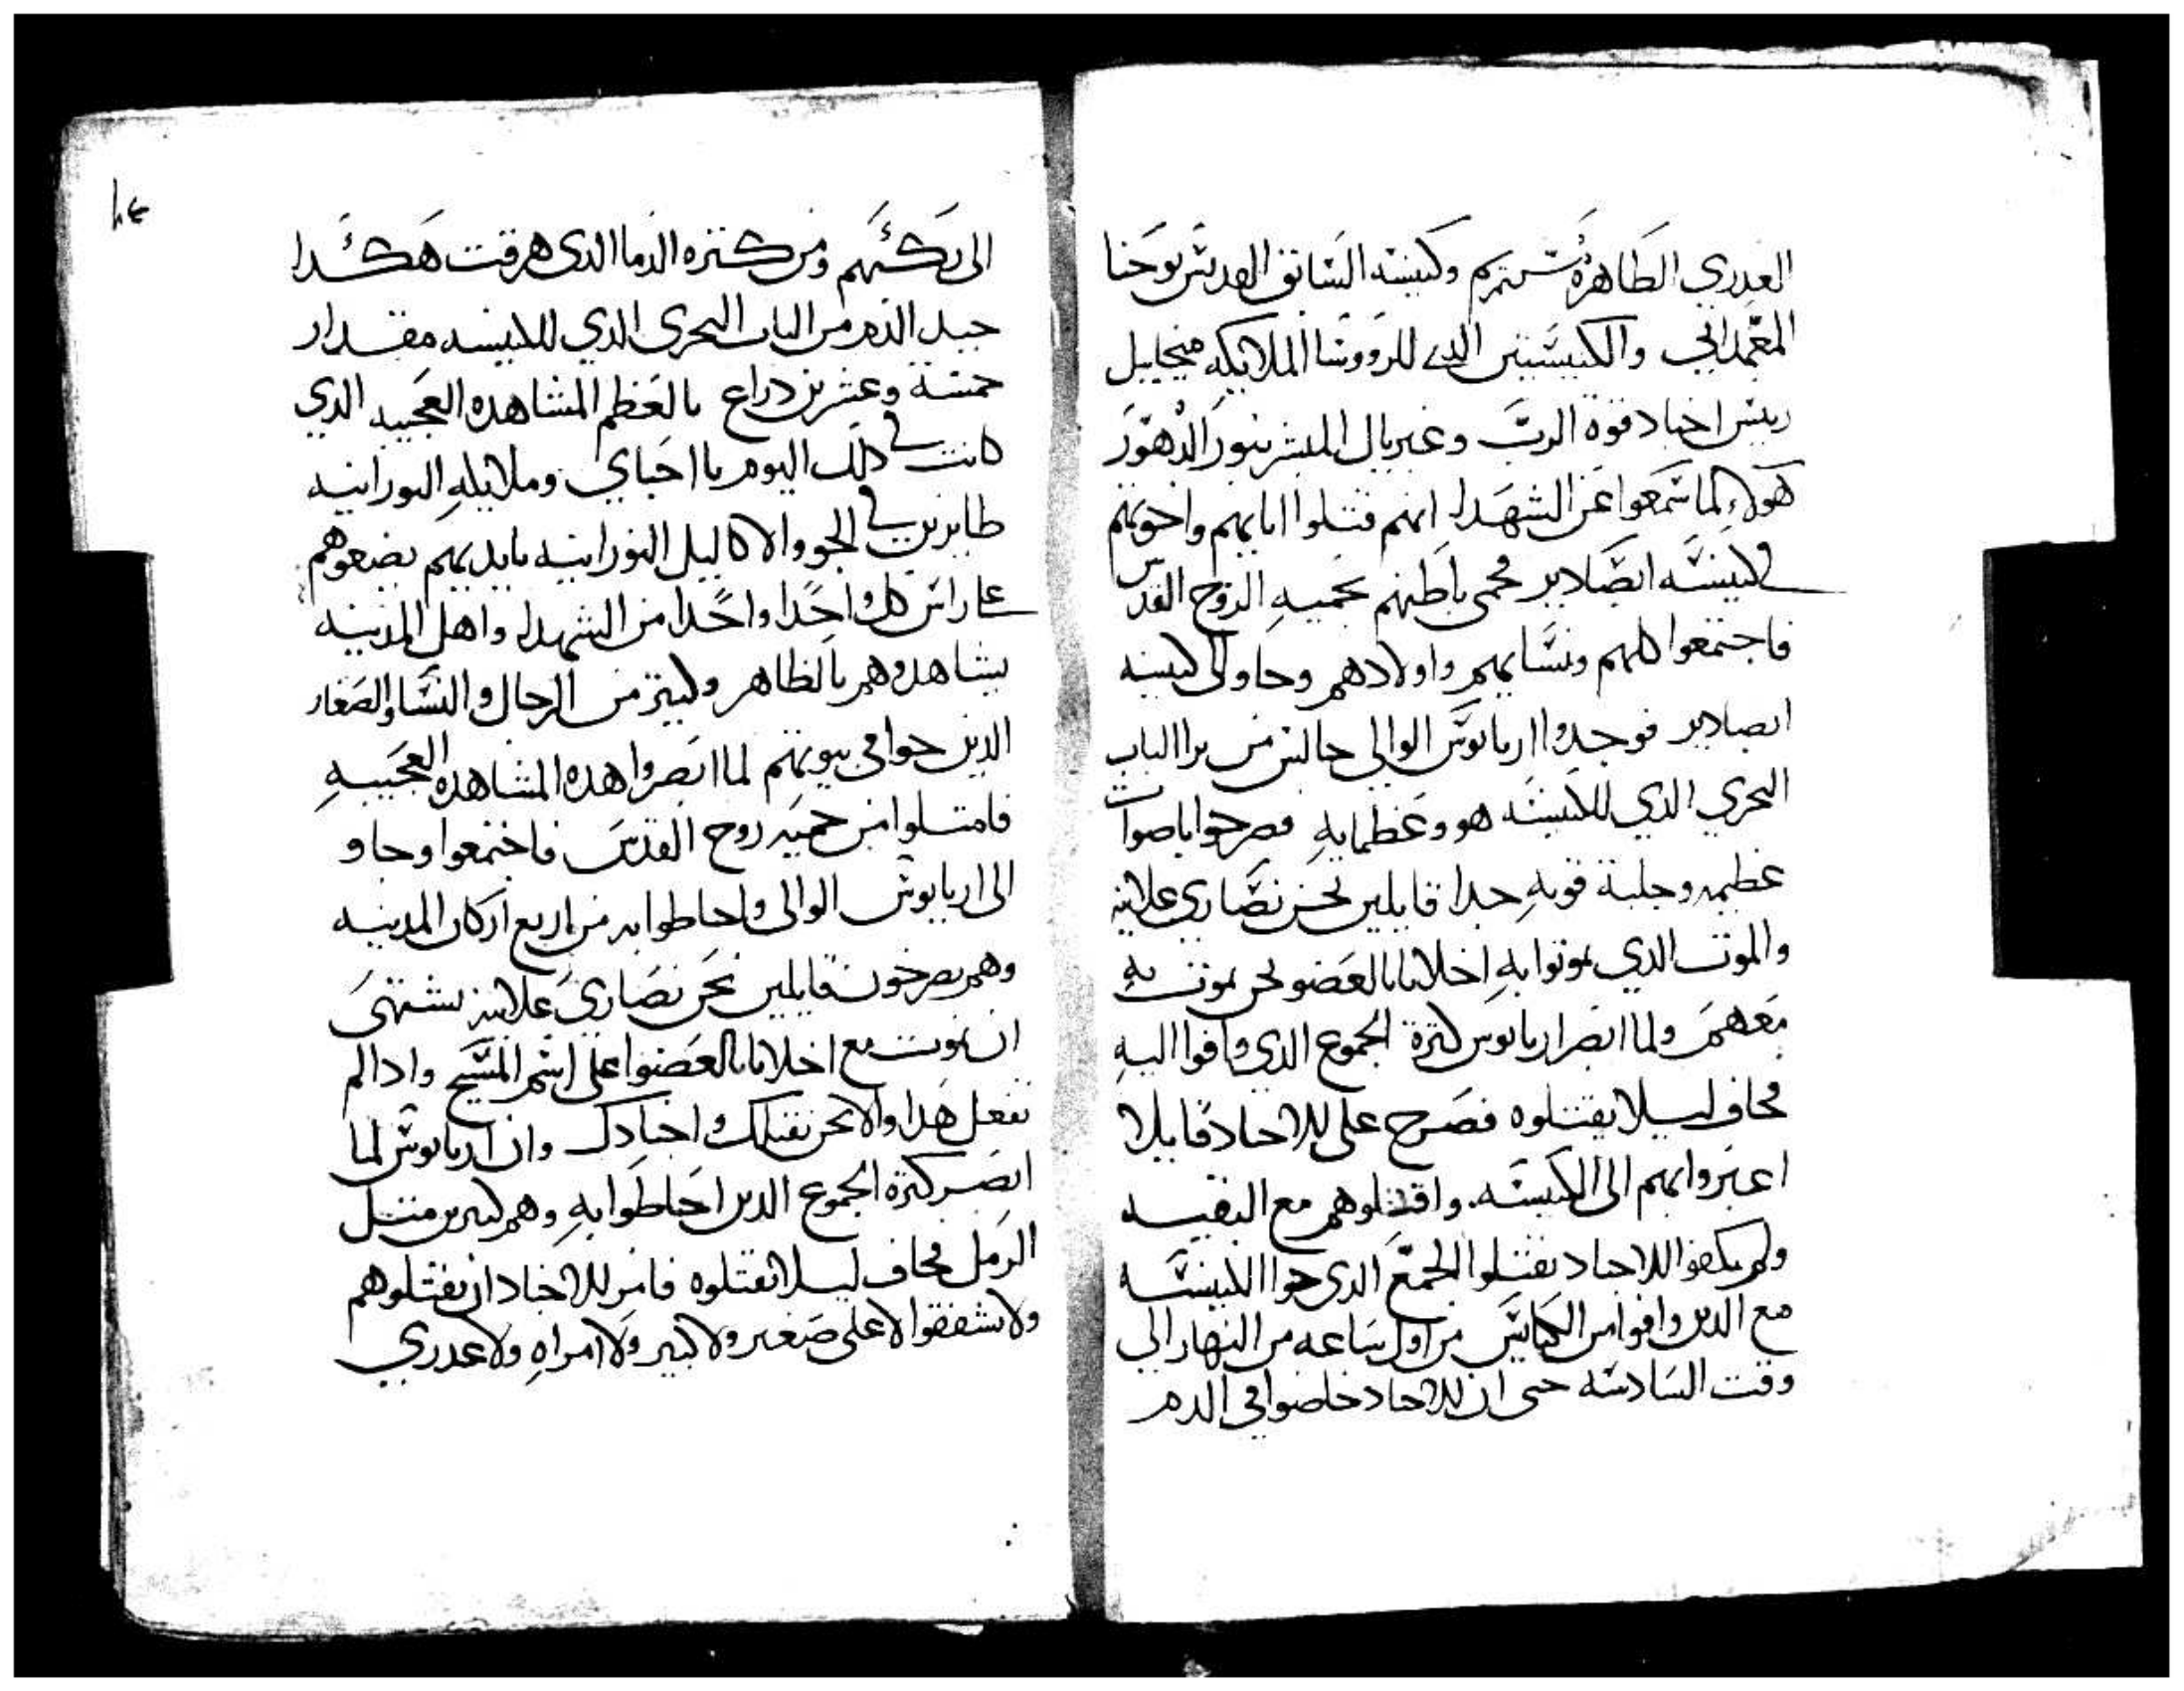 العدري الطاهرة مرتمريم وكنيسه السابق القديس يوحنا
المعمداني والكنيستين الدي للرووسا الملايكه ميخاييل
رييس اجناد قوة الرب وغبريال المبشر بنور الدهور
هولاء لما سمعوا عن الشهدا انهم قتلوا اباييهم واخوتهم
في كنيسة ابصلادير فحمي باطنهم بحميه الروح القدس
فاجتمعوا كلهم ونسايهم واولادهم وجاو الي كنيسه
ابصلادير فوجدوا اريانوس الوالي جالس من برا الباب
البحري الدي للكنيسه هو وعظمايه فصرخوا باصوات
عظيمه وجلبة قويه جدا قايلين نحن نصاري علانيه
والموت الدي يموتوا به اخلانا بالعضو نحن نموت به
معهم ولما ابصر اريانوس كترة الجموع الدي وافوا اليه
فخاف ليلا يقتلوه فصرخ على للاجناد قايلا
اعبروا بهم الى الكنيسه واقتلوهم مع البقيه
ولم يكفوا للاجناد يقتلوا الجمع الدي جوا الكنيسه
مع الدين وافوا من الكنايس من اول ساعه من النهار الي
وقت السادسه حتى ان للاجناد خاضوا في الدم
٨٤
الى ركبهم ومن كتره الدما الدى هرقت هكدا
جبد الدم من الباب البحرى الدي للكنيسه مقدار
خمسة وعشرين دراع يا لعظم المشاهده العجيبه الدي
كانت في دلك اليوم يا احباي وملايكه النورانيه
طايرين في الجو والاكاليل النورانيه بايديهم يضعوهم
علي راس كل واحدا واحدا من الشهدا واهل المدينه
يشاهدوهم بالظاهر وكتير من الرجال والنسا والصغار
الدين جوا في بيوتهم لما ابصروا هده المشاهده العجيبه
فامتلوا من حميه روح القدس فاجتمعوا وجاو
الى اريانوس الوالى واحاطوا به من اربع اركان المدينه
وهم يصرخون قايلين نحن نصاري علانيه نشتهى
ان نموت مع اخلانا بالعضوا على اسم المسيح وادا لم
تفعل هدا والا نحن نقتلك واجنادك وان اريانوس لما
ابصر كترة الجموع الدين احاطوا به وهم كتيرين متل
الرمل فخاف ليلا تقتلوه فامر للاجناد ان يقتلوهم
ولا تشفقوا لا على صغير ولا كبير ولا امراه ولا عدري